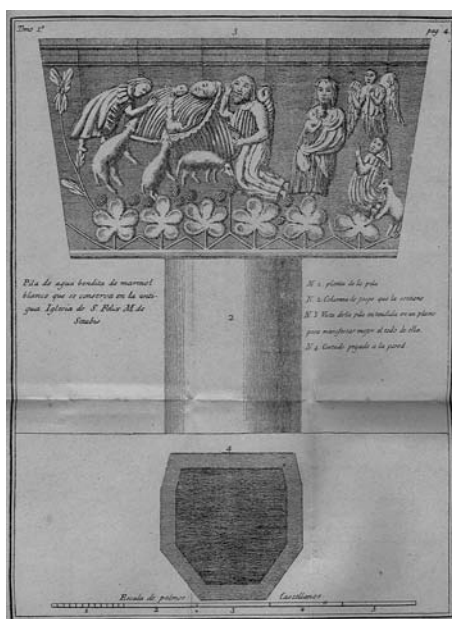 Tmo 1º 3 pag 4.
Pila de agua bendita de marmol
blanco que se conserva en la anti-
gua Iglesia de S. Felix M. de
Setabis
2
N 1. planta de la pila
N. 2. Columna de jaspe que la sostiene
N 3 Vista de la pila estendida en un plano
para manifestar mejor el todo de ella.
N. 4 Costado pegado a la pared
4
Escala de palmos Castellanos
1 2 3 4 5